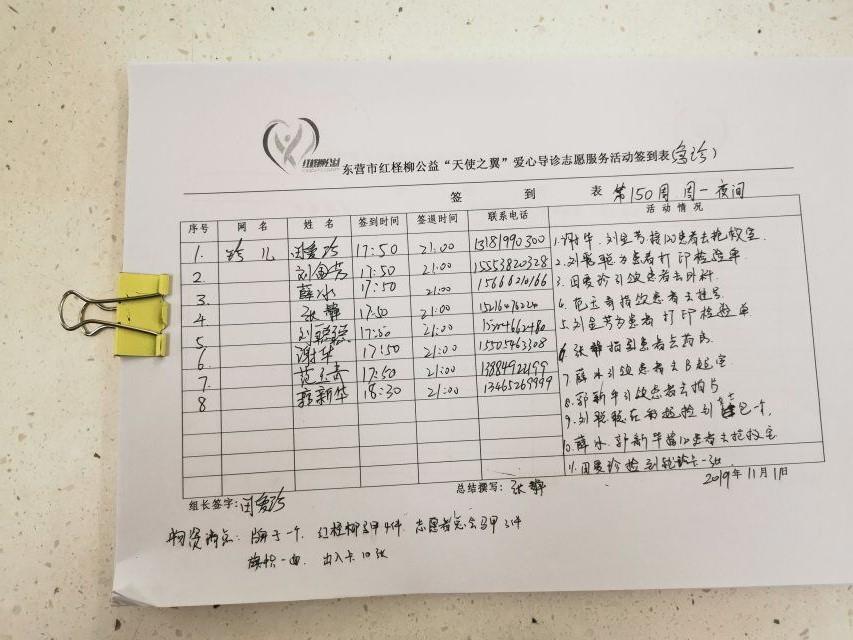 东营市红柽柳公益“天使之翼”爱心导诊志愿服务活动签到表(急诊)
签到表 第150周 周一夜间
序号 网名 姓名 签到时间 签退时间 联系电话 活动情况
1. 玲儿 17:50 21:00 13181990300
2. 刘金芳 17:50 21:00 15553820328
3. 薛冰 17:50 21:00 15666210166
4 张静 17:50 21:00
5 刘聪聪 17:50 21:00
6 谢华 17:50 21:00 15505463308
7. 17:50 21:00 13884922199
8 郭新华 18:30 21:00 13465269999
1.谢华、刘金芳接120患者去抢救室.
2.刘聪聪为患者打印检验单
3.引领患者去外科.
4.指引患者去挂号
5.刘金芳为患者打印检验单
6.张静指引患者去药房
7.薛冰引领患者去B超室
8.郭新华引领患者去拍片
9.刘聪聪在
10.薛冰.郭新华接120患者去抢救室
11.捡到就诊卡一张
组长签字:
总结撰写:张静
2019年11月11日
物资清点:牌子一个.红柽柳马甲4件.志愿者马甲3件
旗帜一面 出入卡10张